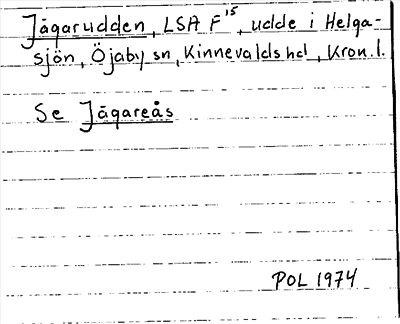 Jägarudden, LSA F¹⁵, udde i Helga-
sjön, Öjaby sn, Kinnevalds hd, Kron. l.
Se Jägareås
POL 1974